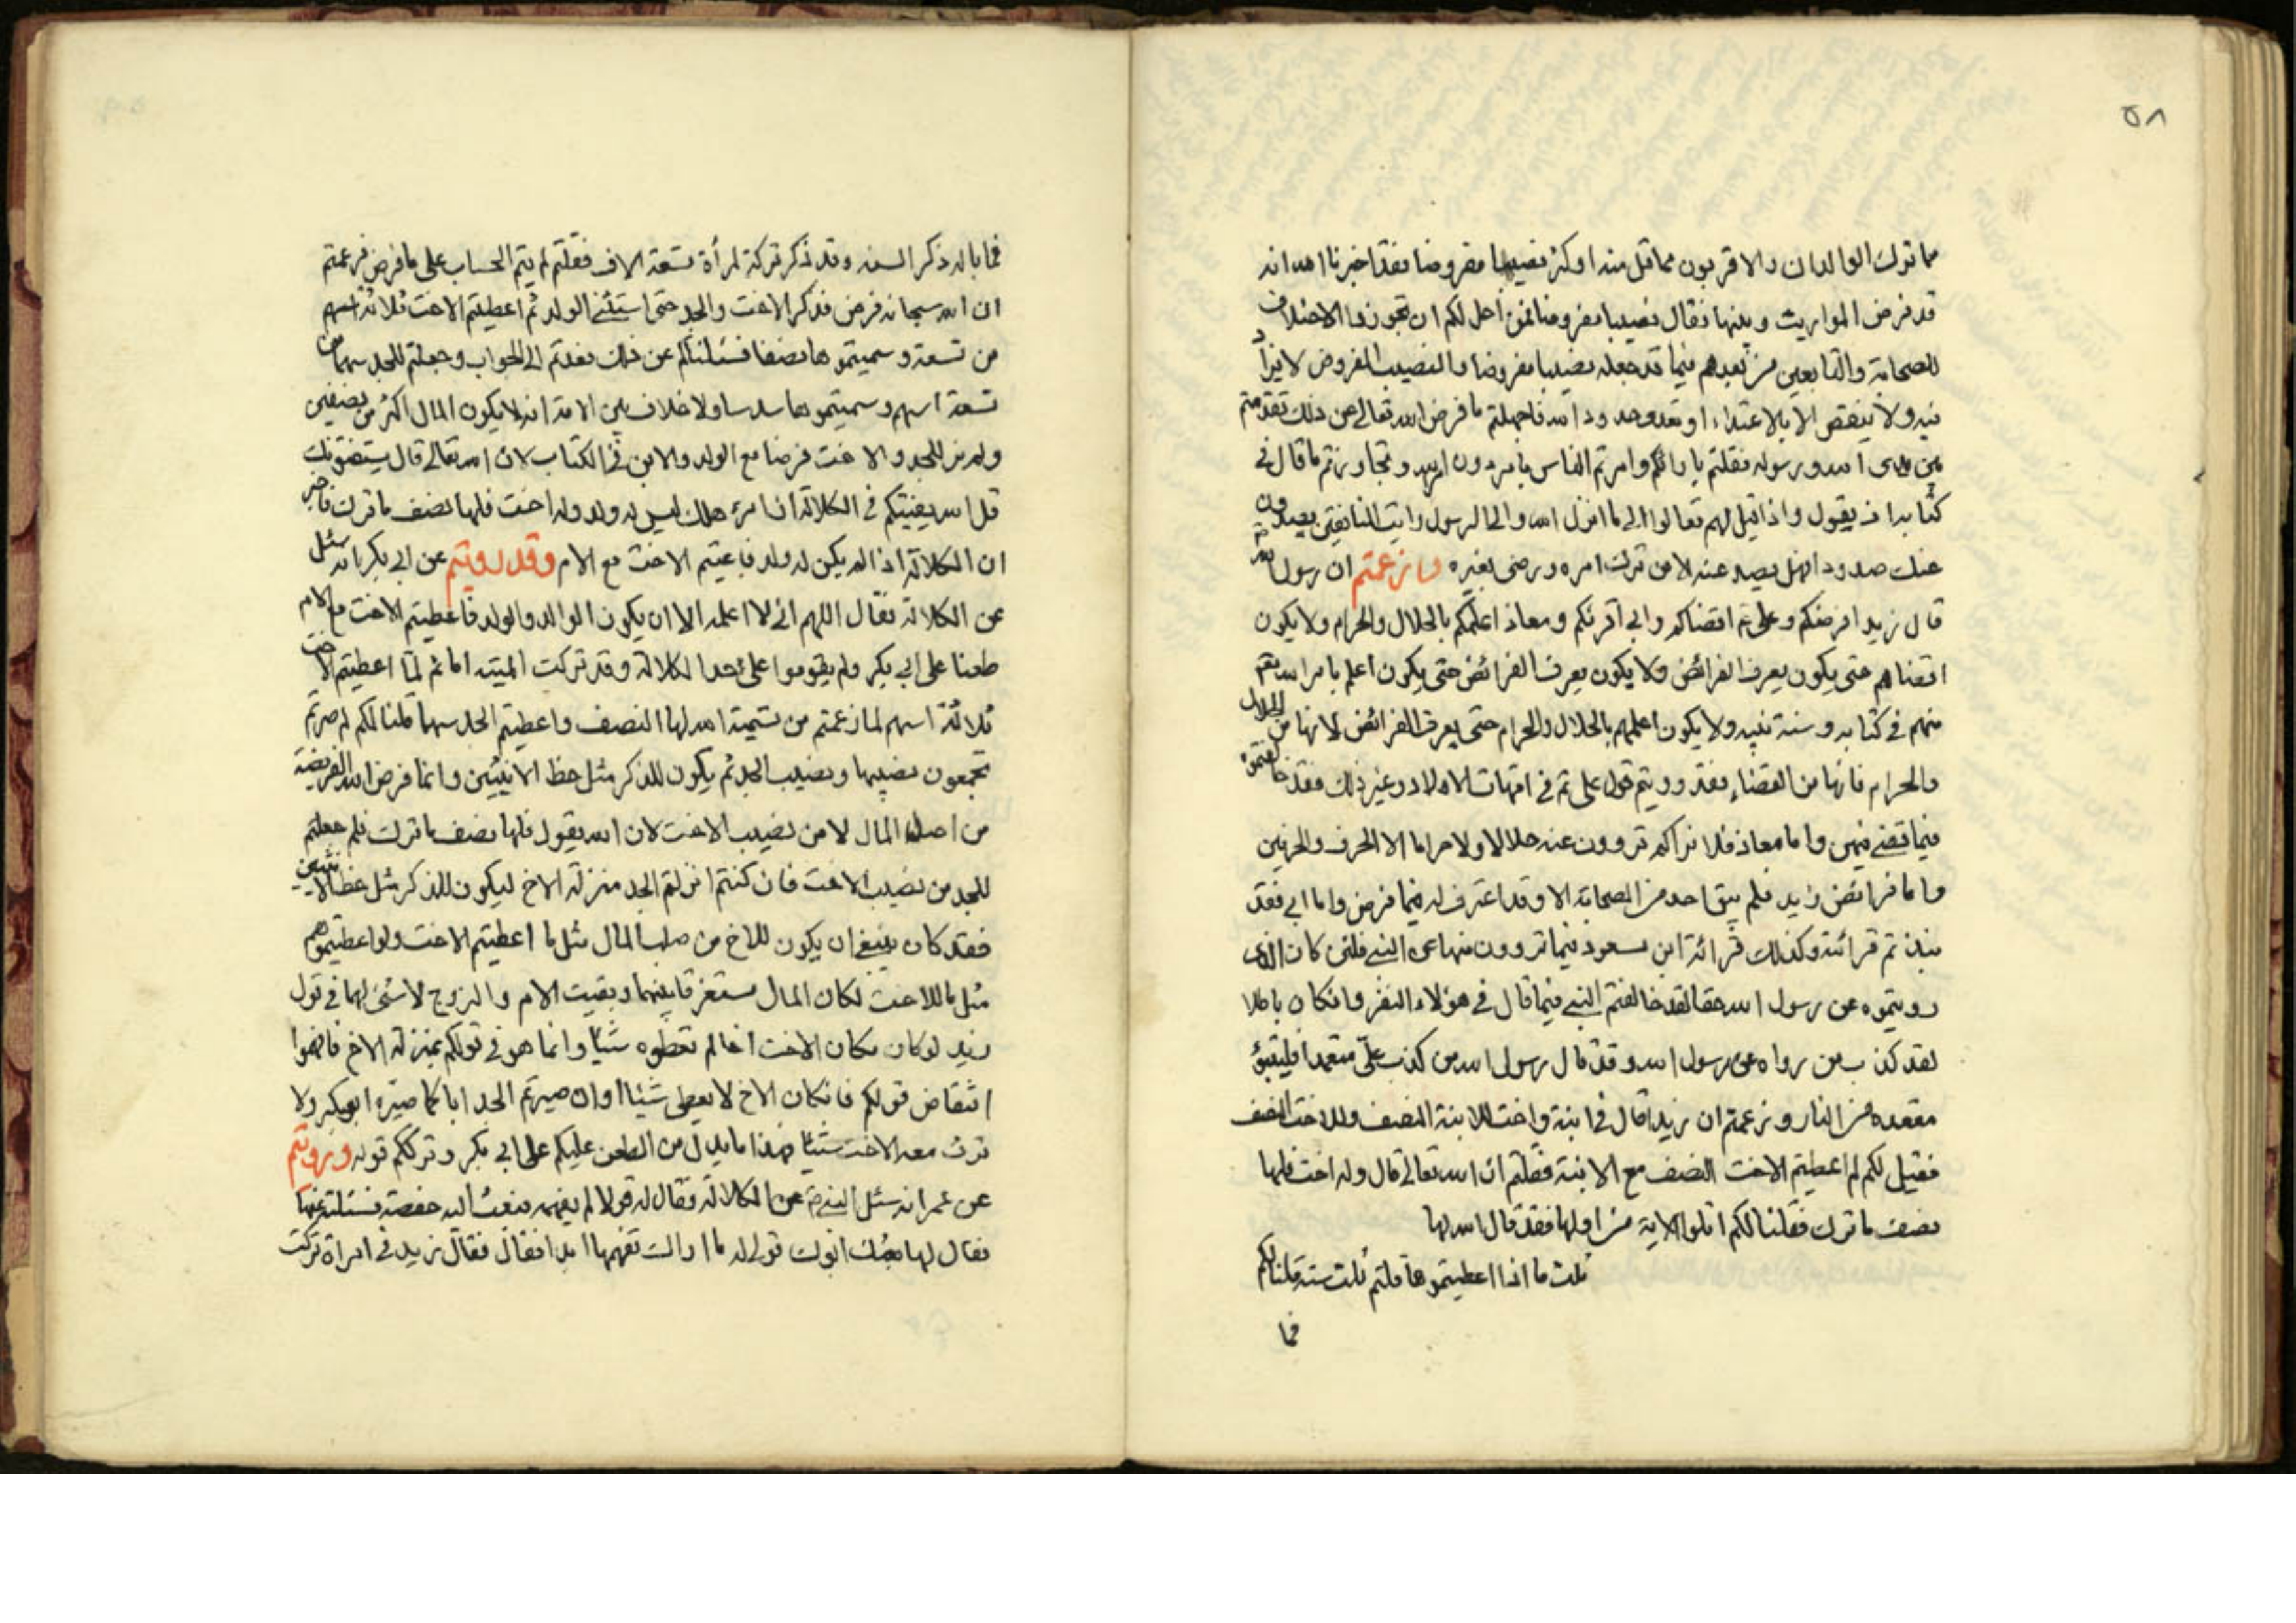 ٥٨
مما ترك الوالدان والاقربون مما قل منه او كثر نصيبا مفروضا فقد اخبرنا الله انه
قد فرض المواريث وبينها فقال نصيبا مفروضا فمن احل لكم ان تجوزوا الاختلاف
للصحابة والتابعين من بعدهم فيما قد جعله نصيبا مفروضا والنصيب المفروض لا يزاد
فيه ولا ينقص الا بالاعتداء او تعدو حدود الله فاجهلتم ما فرض الله تعالى عن ذلك تقدمتم
بين يدى الله ورسوله فقلتم بارائكم وامرتم الناس بامر دون امر الله وتجاوزتم ما قال فى
كتابه اذ يقول واذا قيل لهم تعالوا الى ما انزل الله والى الرسول رايت المنافقين يصدون
عنك صدودا فهل يصد عنه الا من ترك امره ورضى بغيره وزعمتم ان رسول الله
قال زيد افرضكم وعلى اقضاكم وابى اقرئكم ومعاذ اعلمكم بالحلال والحرام ولا يكون
اقضاهم حتى يكون يعرف الفرائض ولا يكون يعرف الفرائض حتى يكون اعلم بامر الله
منهم فى كتابه وسنة نبيه ولا يكون اعلمهم بالحلال والحرام حتى يعرف الفرائض لانها من الحلال
والحرام فانها من القضاء فقد رويتم قول على فى امهات الاولاد وغير ذلك فقد خالفتموه
فيما قضى فيهن واما معاذ فلا نراكم تروون عنه حلالا ولا حراما الا الحرف والحرفين
واما فرائض زيد فلم يبق احد من الصحابة الا وقد اعترف له فيما فرض واما ابى فقد
نبذتم قرائته وكذلك قرائة ابن مسعود فيما تروون منها عن النبى فلئن كان الذى
رويتموه عن رسول الله حقا لقد خالفتم النبى فيما قال فى هؤلاء النفر وان كان باطلا
لقد كذب من رواه عن رسول الله وقد قال رسول الله من كذب على متعمدا فليتبؤ
مقعده من النار وزعمتم ان زيدا قال فى ابنة واخت للابنة النصف وللاخت النصف
فقيل لكم لم اعطيتم الاخت النصف مع الابنة فقلتم ان الله تعالى قال وله اخت فلها
نصف ما ترك فقلنا لكم اتلوا الاية من اولها فقد قال الله لها
ثلث ماذا اعطيتموها قلتم ثلث ستة قلنا لكم
فما
فما باله ذكر السدس وقد ذكر تركة امرأة تسعة الاف فقلتم لم يتم الحساب على ما فرض فزعمتم
ان الله سبحانه فرض فذكر الاخت والجد حتى استثنى الولد ثم اعطيتم الاخت ثلاثة اسهم
من تسعة وسميتموها نصفا فسئلناكم عن ذلك فعدتم الى الجواب وجعلتم للجد سهما من
تسعة اسهم وسميتموها سدسا ولا خلاف بين الامة انه لا يكون المال اكثر من نصفين
ولم نر للجد والاخت فرضا مع الولد والابن فى الكتاب لان الله تعالى قال يستفتونك
قل الله يفتيكم فى الكلالة ان امرؤ هلك ليس له ولد وله اخت فلها نصف ما ترك فاخبر
ان الكلالة اذا لم يكن له ولد فاعطيتم الاخت مع الام وقد رويتم عن ابى بكر انه سئل
عن الكلالة فقال اللهم انى لا اعلمه الا ان يكون الوالد والولد فاعطيتم الاخت مع الام
طعنا على ابى بكر ولم يقوموا على حد الكلالة وقد تركت الميتة اما ثم لما اعطيتم الاخت
ثلاثة اسهم لما زعمتم من تسمية الله لها النصف واعطيتم الجد سهما قلنا لكم لم صرتم
تجمعون نصيبها ونصيب الجد ثم يكون للذكر مثل حظ الانثيين وانما فرض الله الفريضة
من اصل المال لا من نصيب الاخت لان الله يقول فلها نصف ما ترك فلم جعلتم
للجد من نصيب الاخت فان كنتم انزلتم الجد منزلة الاخ ليكون للذكر مثل حظ الانثيين
فقد كان ينبغى ان يكون للاخ من صلب المال مثل ما اعطيتم الاخت ولو اعطيتموهم
مثل ما للاخت لكان المال مستغرقا بينهما وبقيت الام والزوج لا شئ لهما فى قول
زيد لو كان مكان الاخت اخا لم تعطوه شيئا وانما هو فى قولكم بمنزلة الاخ فافهموا
انتقاض قولكم فان كان الاخ لا يعطى شيئا وان صيرتم الجد ابا كما صيره ابو بكر ولا
ترث معه الاخت شيئا فهذا ما يدل من الطعن عليكم على ابى بكر وترككم قوله ورويتم
عن عمر انه سئل النبى عن الكلالة فقال له قولا لم يفهمه فبعث اليه حفصة فسئلته عنها
فقال لها ابوك قولى له ما اراك تفهمها ابدا فقال فقال زيد فى امرأة تركت